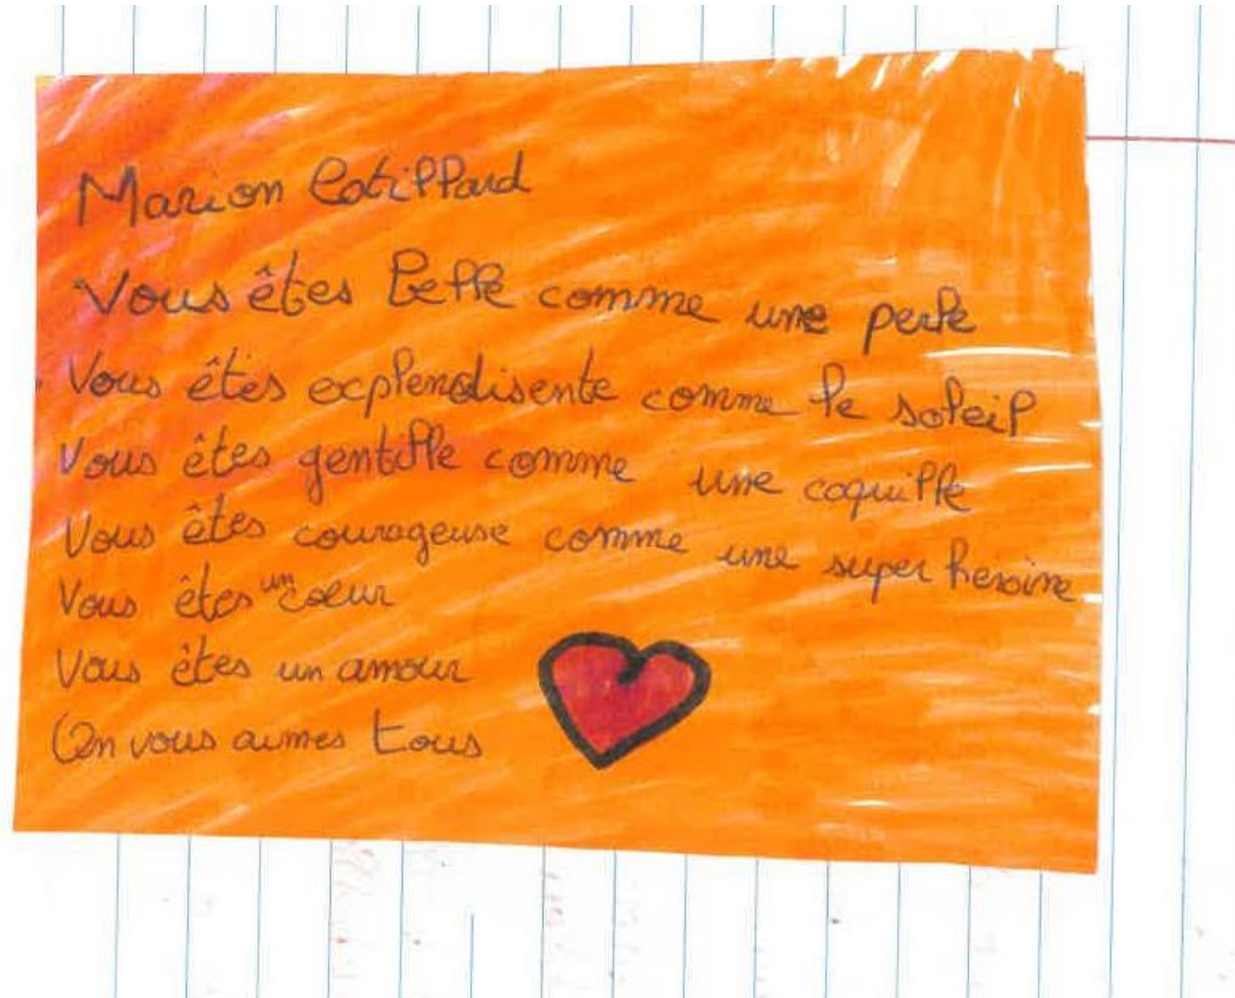 Marion Cotillard
Vous êtes belle comme une perle
Vous êtes explendisente comme le soleil
Vous êtes gentille comme une coquille
Vous êtes courageuse comme une super heroine
Vous êtes un coeur
Vous êtes un amour
On vous aimes tous